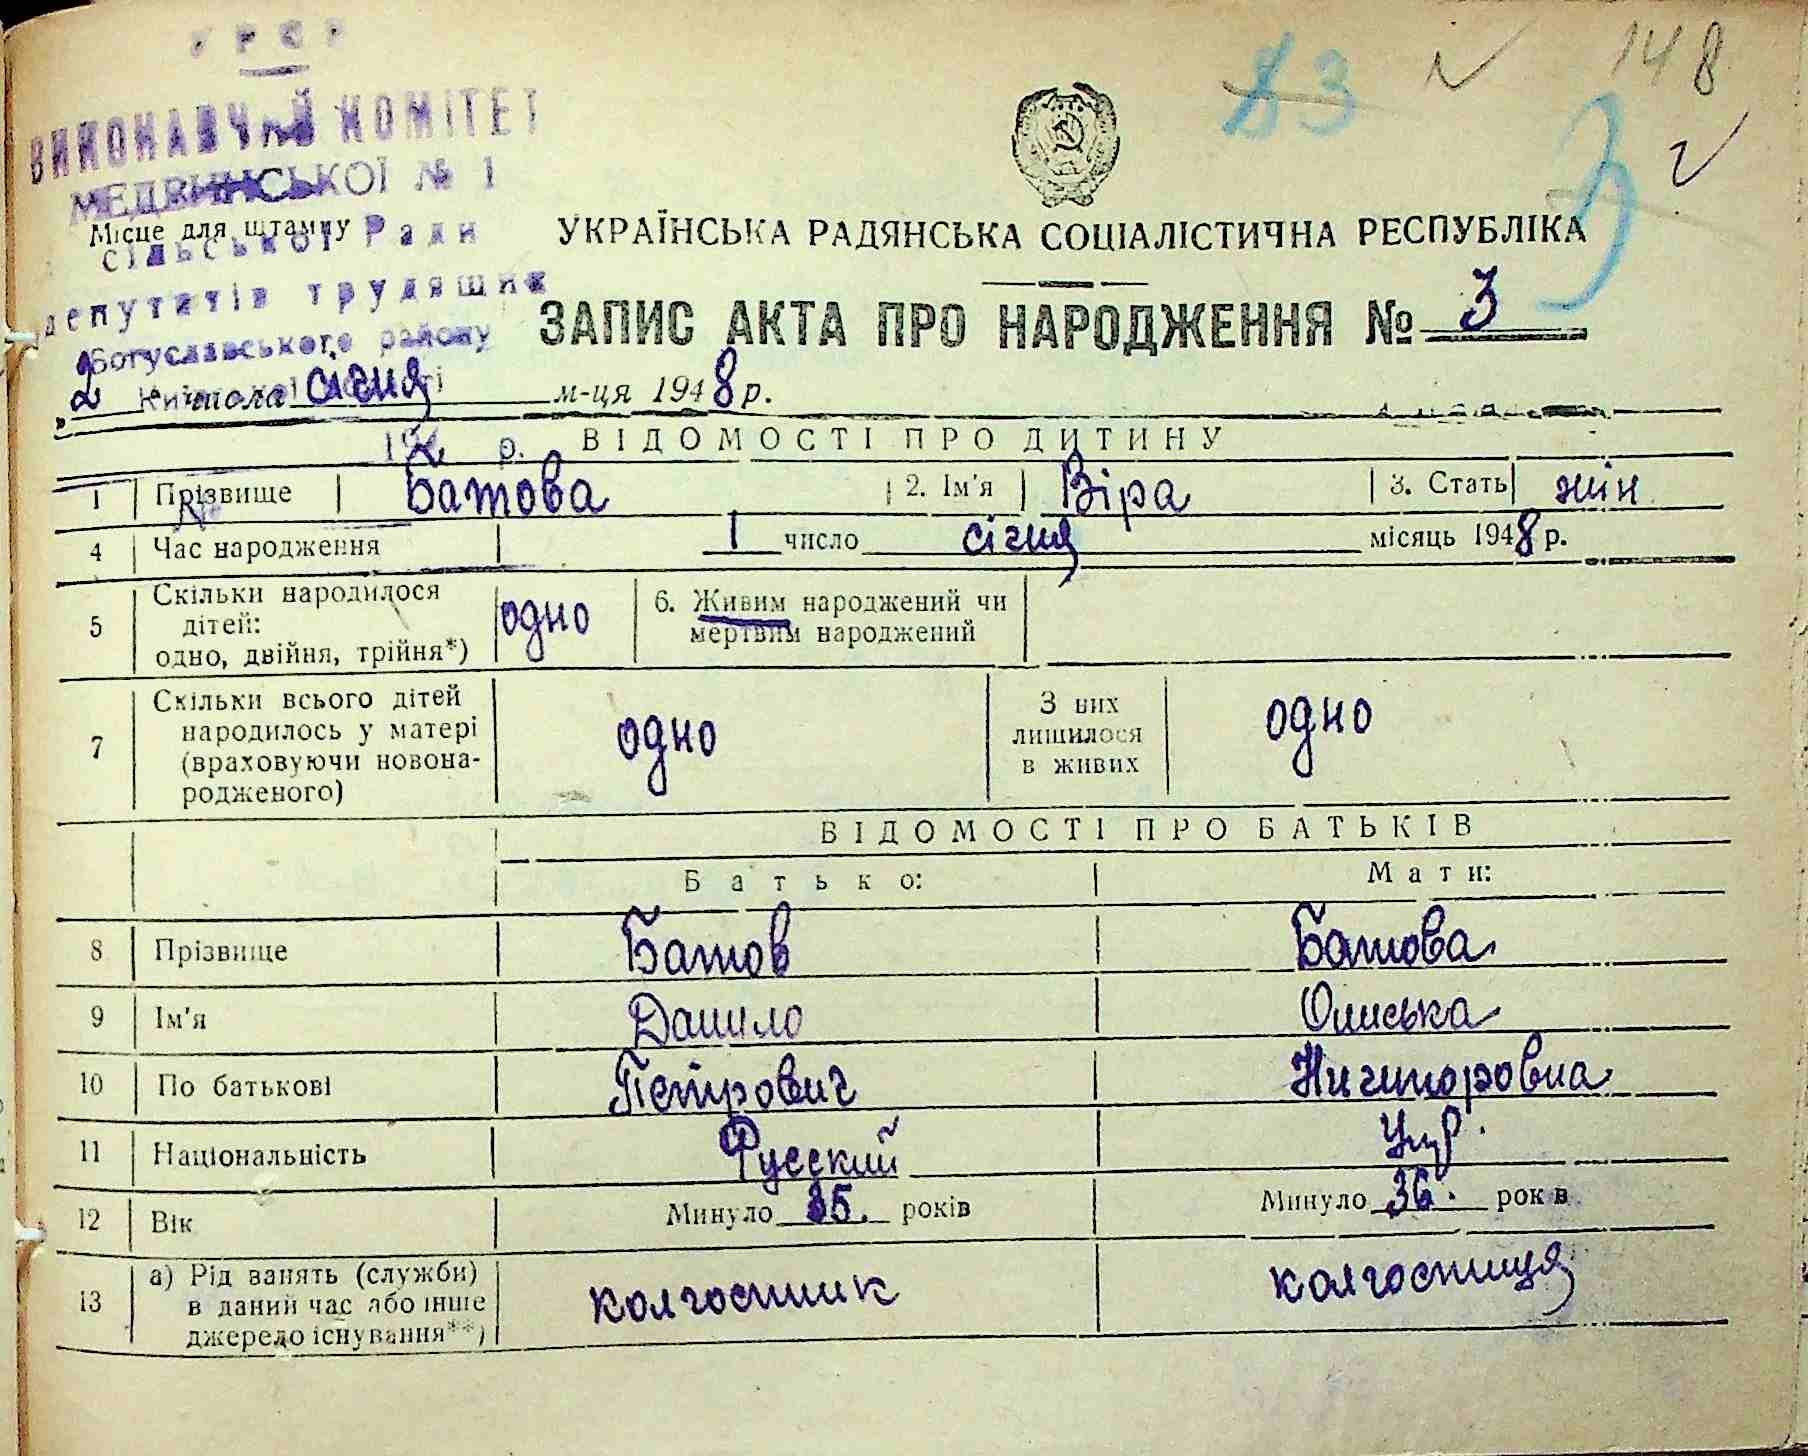 УРСР
ВИКОНАВЧИЙ КОМІТЕТ
МЕДВИНСЬКОЇ № 1
Місце для штампу
сільської Ради
депутатів трудящих
Богуславського району
Київської області
194 р.
83
148
3
УКРАЇНСЬКА РАДЯНСЬКА СОЦІАЛІСТИЧНА РЕСПУБЛІКА
ЗАПИС АКТА ПРО НАРОДЖЕННЯ № 3
„2 “ числа січня м-ця 1948 р.
ВІДОМОСТІ ПРО ДИТИНУ
1 Прізвище Батова 2. Ім'я Віра 3. Стать жін
4 Час народження 1 число січня місяць 1948 р.
5 Скільки народилося дітей: одно, двійня, трійня*) одно 6. Живим народжений чи мертвим народжений
7 Скільки всього дітей народилось у матері (враховуючи новонародженого) одно З них лишилося в живих одно
ВІДОМОСТІ ПРО БАТЬКІВ
Батько: Мати:
8 Прізвище Батов Батова
9 Ім'я Данило Олиська
10 По батькові Петрович Ничипоровна
11 Національність Русский Укр.
12 Вік Минуло 35. років Минуло 36. років
13 а) Рід занять (служби) в даний час або інше джерело існування**) колгоспник колгоспниця